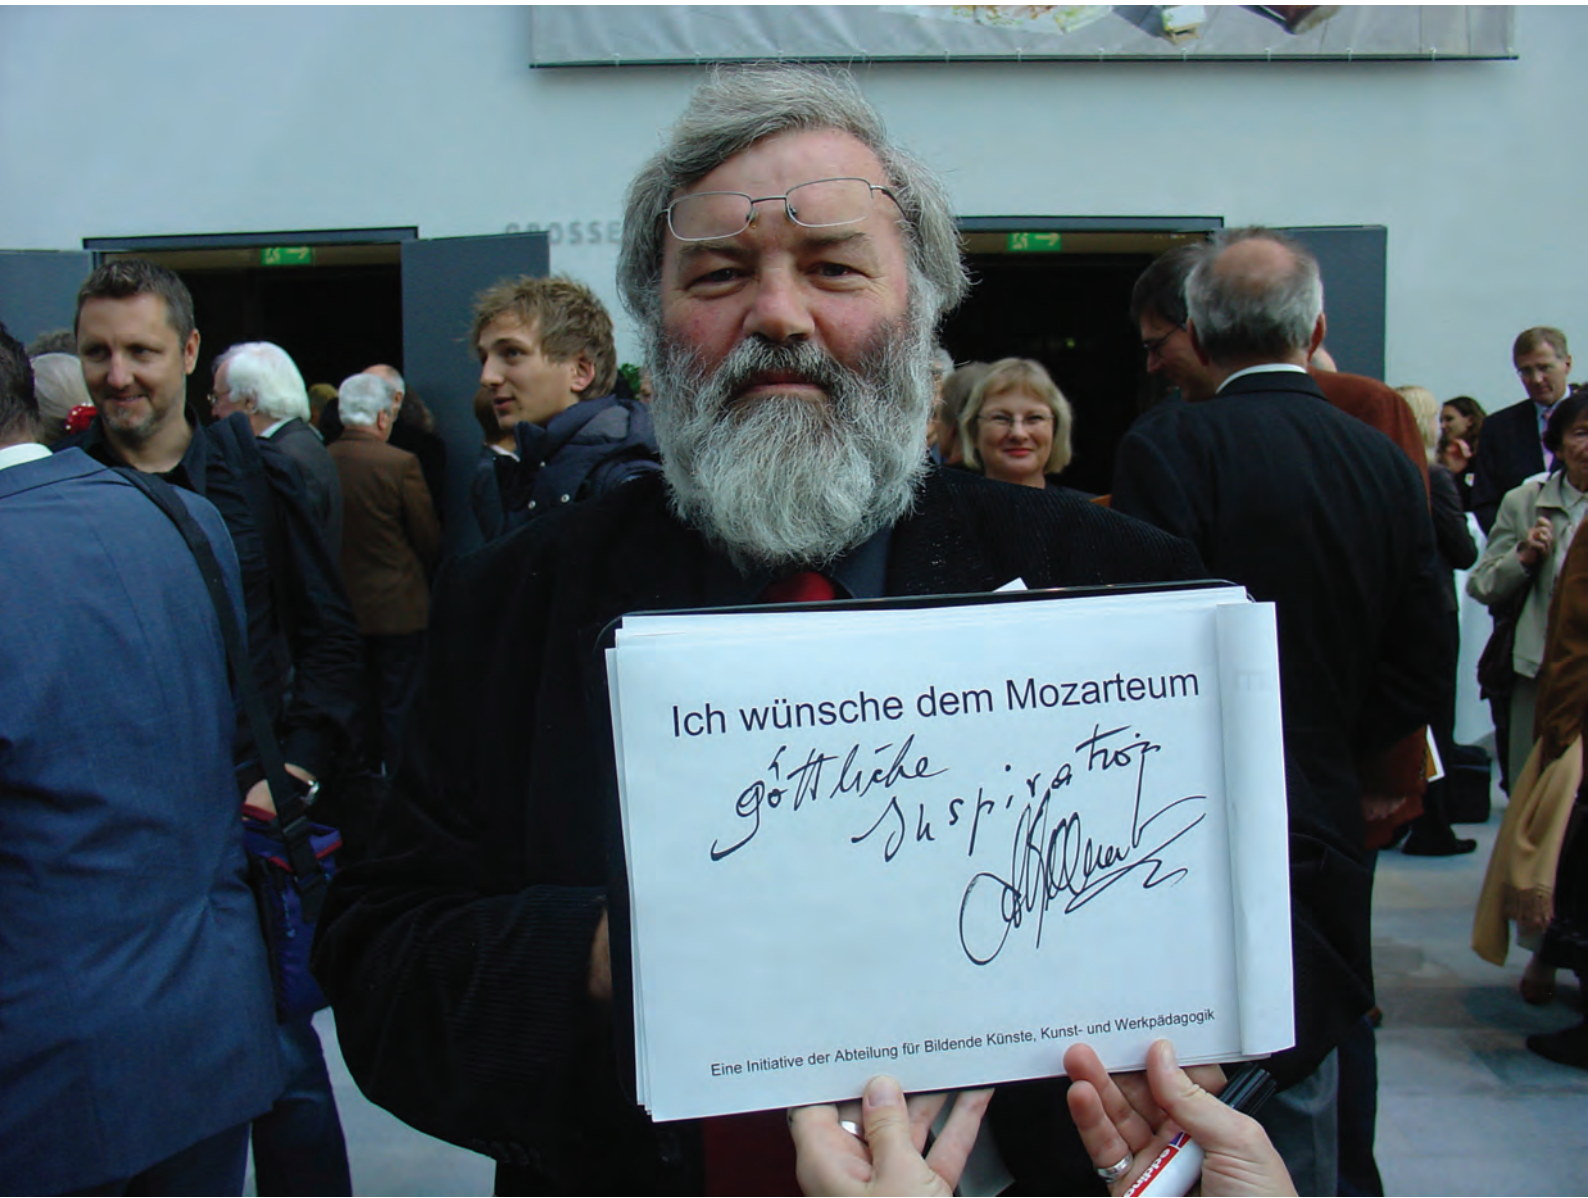 GROSSE
Ich wünsche dem Mozarteum
göttliche
Inspiration
Eine Initiative der Abteilung für Bildende Künste, Kunst- und Werkpädagogik
edding